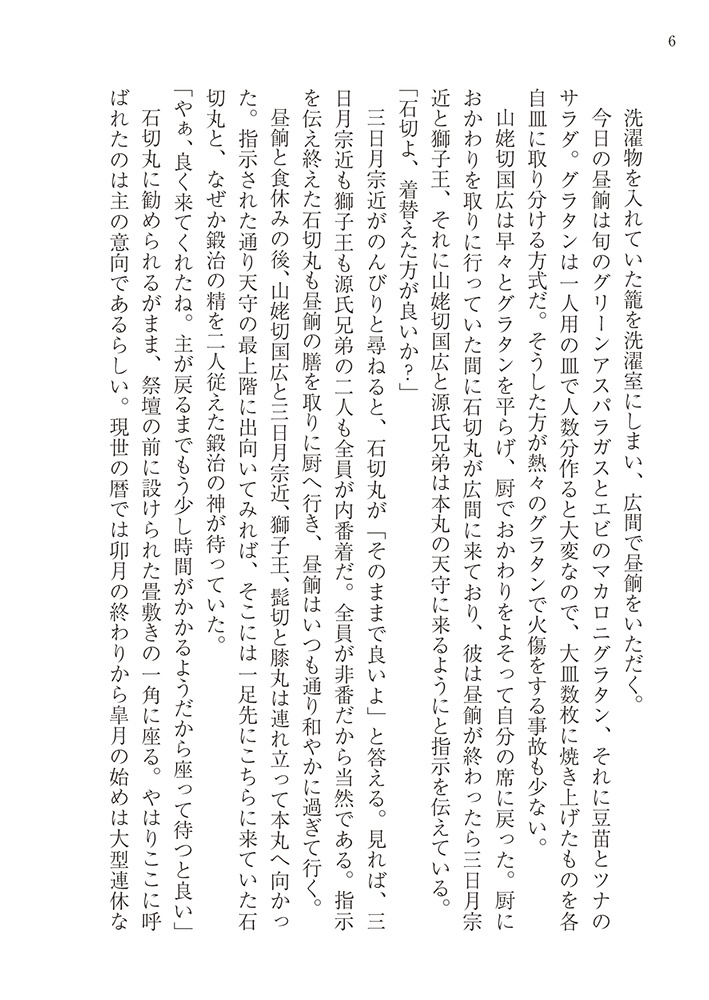 6
洗濯物を入れていた籠を洗濯室にしまい、広間で昼餉をいただく。
今日の昼餉は旬のグリーンアスパラガスとエビのマカロニグラタン、それに豆苗とツナの
サラダ。グラタンは一人用の皿で人数分作ると大変なので、大皿数枚に焼き上げたものを各
自皿に取り分ける方式だ。そうした方が熱々のグラタンで火傷をする事故も少ない。
山姥切国広は早々とグラタンを平らげ、厨でおかわりをよそって自分の席に戻った。厨に
おかわりを取りに行っていた間に石切丸が広間に来ており、彼は昼餉が終わったら三日月宗
近と獅子王、それに山姥切国広と源氏兄弟は本丸の天守に来るようにと指示を伝えている。
「石切よ、着替えた方が良いか?」
三日月宗近がのんびりと尋ねると、石切丸が「そのままで良いよ」と答える。見れば、三
日月宗近も獅子王も源氏兄弟の二人も全員が内番着だ。全員が非番だから当然である。指示
を伝え終えた石切丸も昼餉の膳を取りに厨へ行き、昼餉はいつも通り和やかに過ぎて行く。
昼餉と食休みの後、山姥切国広と三日月宗近、獅子王、髭切と膝丸は連れ立って本丸へ向かっ
た。指示された通り天守の最上階に出向いてみれば、そこには一足先にこちらに来ていた石
切丸と、なぜか鍛治の精を二人従えた鍛治の神が待っていた。
「やぁ、良く来てくれたね。主が戻るまでもう少し時間がかかるようだから座って待つと良い」
石切丸に勧められるがまま、祭壇の前に設けられた畳敷きの一角に座る。やはりここに呼
ばれたのは主の意向であるらしい。現世の暦では卯月の終わりから皐月の始めは大型連休な